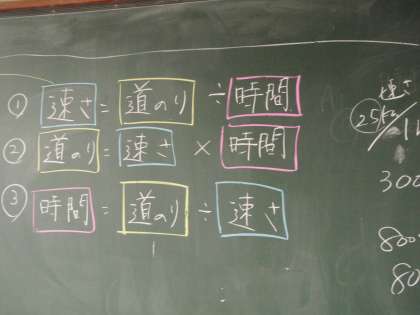 ① 速さ = 道のり ÷ 時間
② 道のり = 速さ × 時間
③ 時間 = 道のり ÷ 速さ
速さ
300
800
80